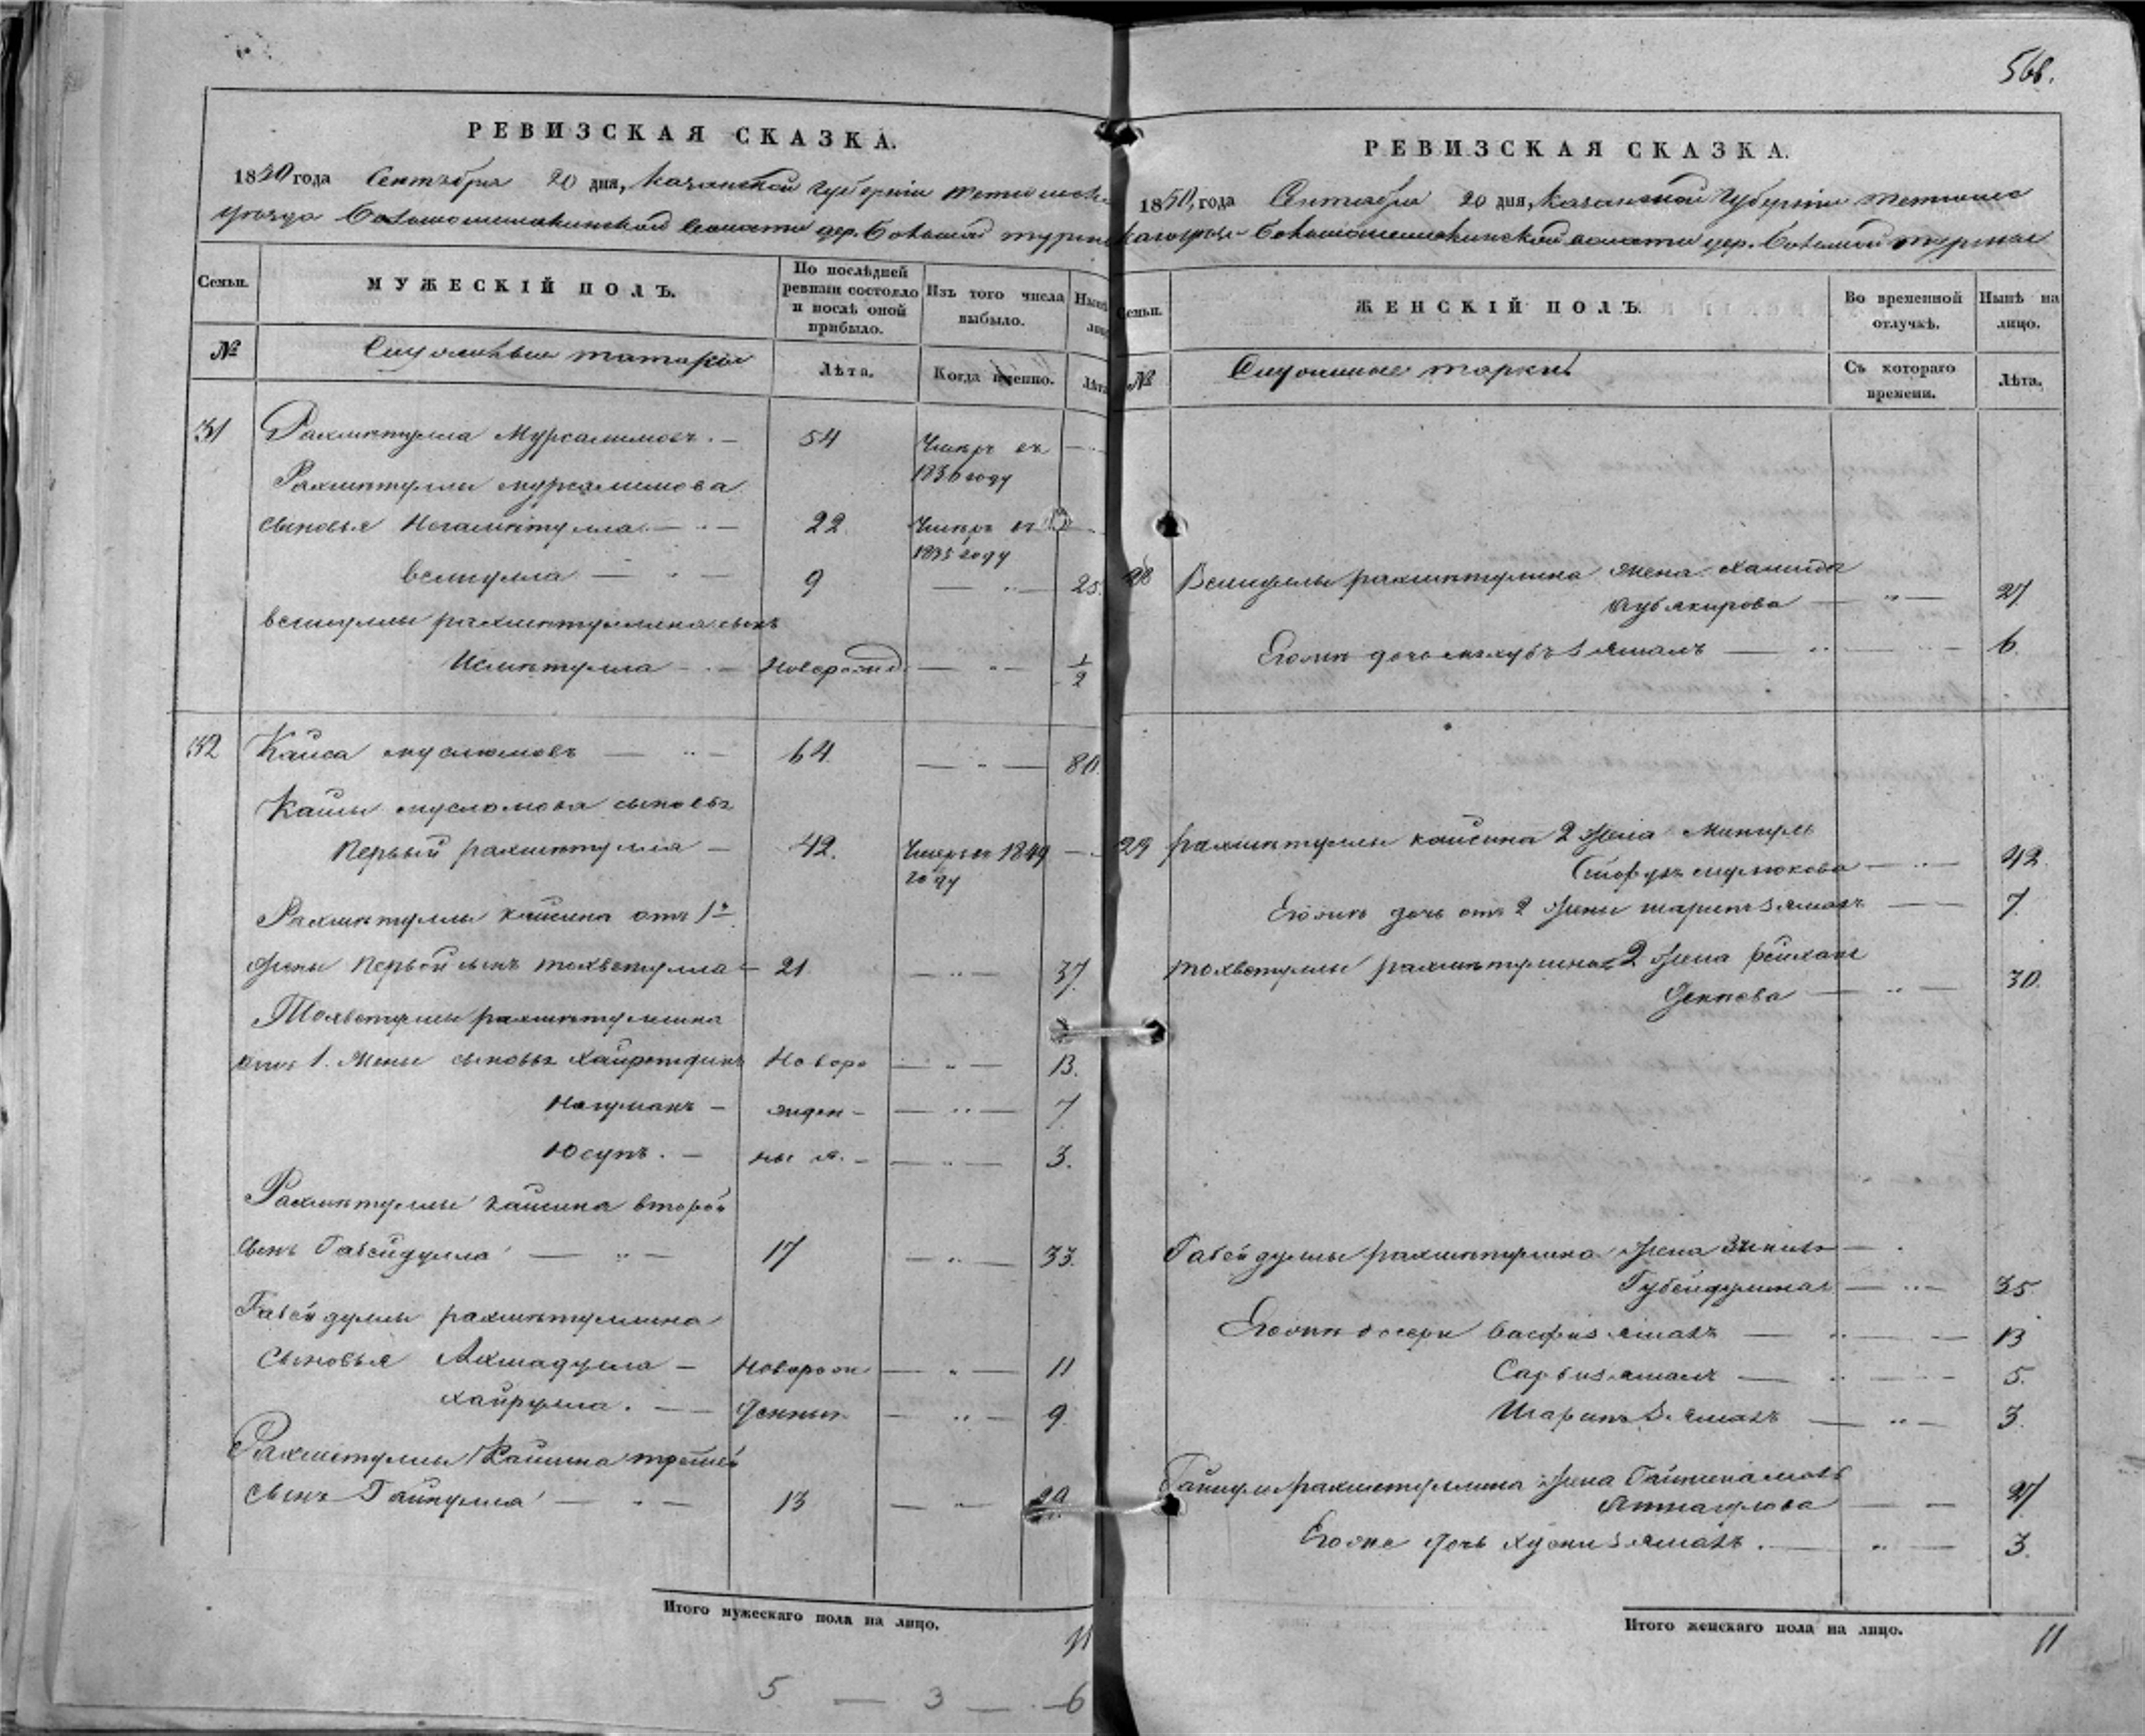 566.
РЕВИЗСКАЯ СКАЗКА.
1850 года Сентября 20 дня, Казанской Губернии Тетюшск
уезда Большошемякинской волости дер. Большой турмы
Семьи.
МУЖЕСКІЙ ПОЛЪ.
По послѣдней ревизіи состояло и послѣ оной прибыло.
Изъ того числа выбыло.
№
Служилые татары
Лѣта.
Когда именно.
Лѣта
31 Рахметулла Мурсалимовъ. — 54 Умеръ въ 1836 году —
Рахметуллы мурсалимова
сыновья Негаметулла — 22 Умеръ въ 1835 году —
велиулла — 9 — 25.
велиуллы рахметуллина сынъ
Исметулла — Новорожд — 1/2
32 Каиса муслюмовъ — 64 — 80.
Каисы муслюмова сыновья
Первый рахметулла — 42. Умеръ въ 1849 году —
Рахметуллы каисина отъ 1й
жены Первой сынъ тохветулла — 21. — 37.
Тохветуллы рахметуллина
отъ 1. жены сыновья хайретдинъ Новоро — 13.
Нагуманъ — жден — 7.
Юсупъ. — ныя. — 3.
Рахметуллы каисина второй
сынъ Габейдулла — 17 — 33.
Габейдуллы рахметуллина
сыновья Ахмадулла — Новорож — 11
хайрулла. — денныя — 9.
Рахметуллы Каисина третей
сынъ Гайнулла — 13 — 29.
Итого мужескаго пола на лицо.
11
5 — 3 — 6
РЕВИЗСКАЯ СКАЗКА.
1850 года Сентября 20 дня, Казанской Губернии Тетюшс
каго уезда Большошемякинской волости дер. Большой турмы
Семьи.
ЖЕНСКІЙ ПОЛЪ.
Во временной отлучкѣ.
Нынѣ на лицо.
№
Служилые
Съ котораго времени.
Лѣта.
28 Велиуллы рахметуллина жена хамида
аубякирова — 27.
Еголи дочь махубъ зямалъ — 6.
29 рахметуллы каисина 2 жена
42.
Еголи дочь от 2 жены шарипъ зямалъ — 7.
тохветуллы рахметуллина 2 жена рейхане
30.
Габейдуллы рахметуллина жена
Губейдуллина — 35
Еголи дочери васфизямалъ — 13
Сарбизямалъ — 5.
Шарипъ зямалъ — 3.
Гайнуллы рахметуллина жена Гайникамалъ
27.
Егоже дочь хуснизямалъ. — 3.
Итого женскаго пола на лицо.
11